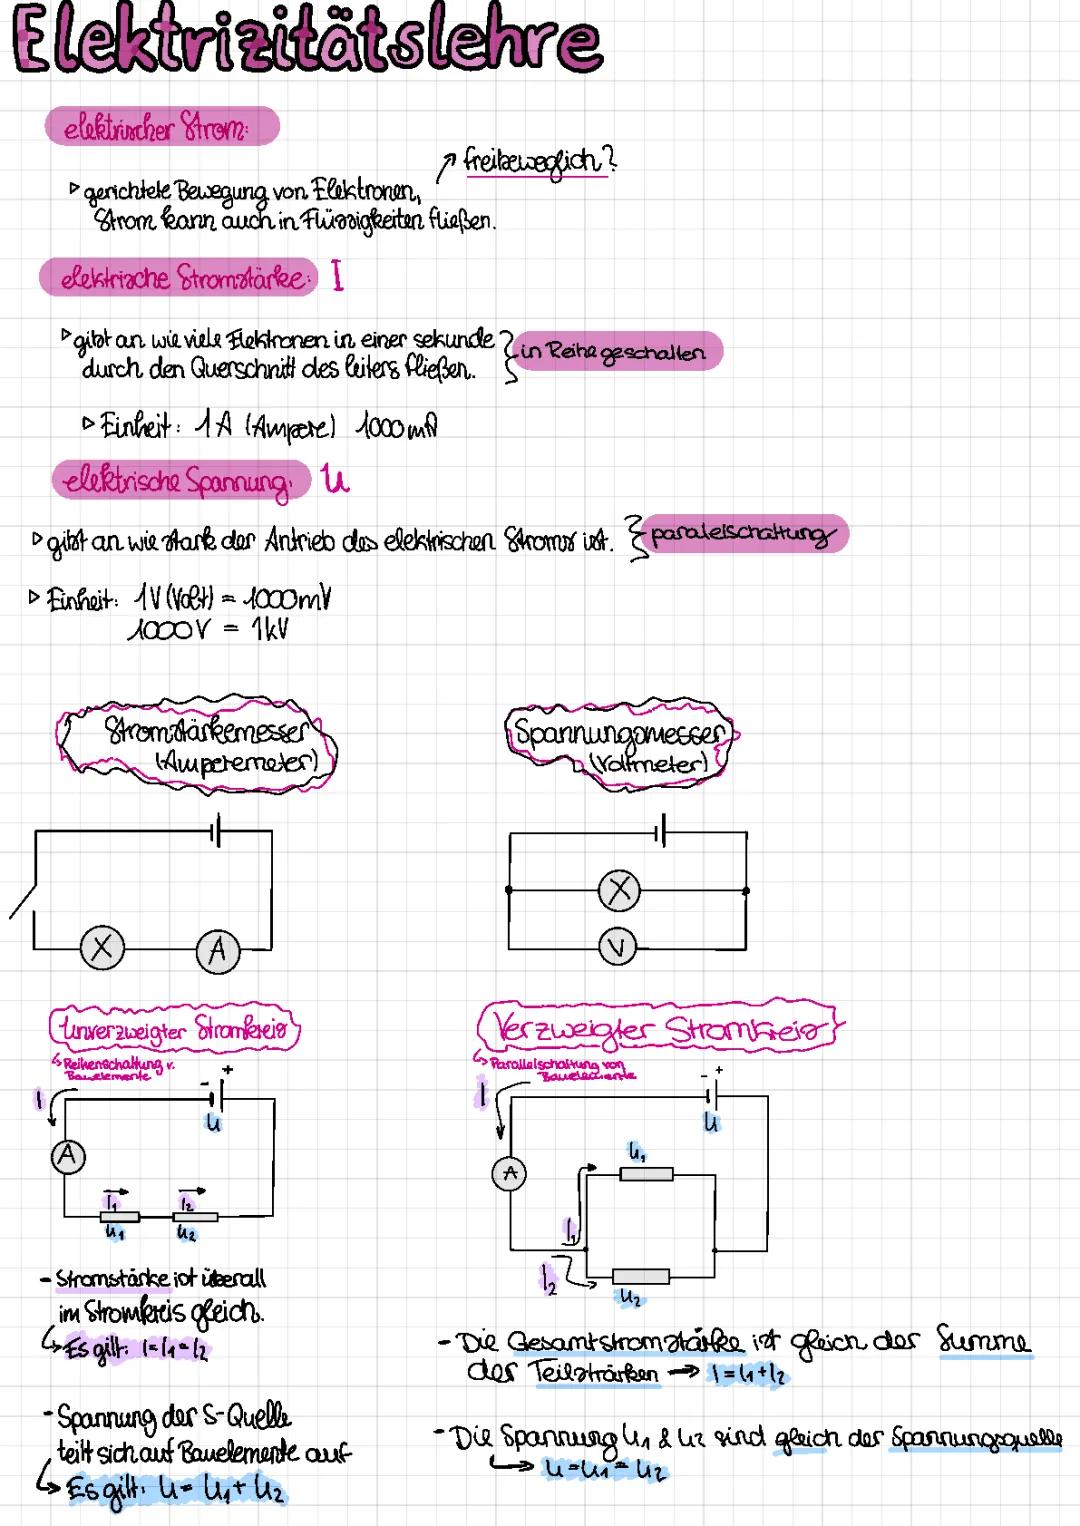 Elektrizitätslehre
elektrischer Strom:
↗ freibeweglich?
▷ gerichtete Bewegung von Elektronen,
Strom kann auch in Flüssigkeiten fließen.
elektrische Stromstärke: I
▷ gibt an wie viele Elektronen in einer sekunde
durch den Querschnitt des leiters fließen.
in Reihe geschalten
▷ Einheit: 1A (Ampere) 1000mA
elektrische Spannung: U
▷ gibt an wie stark der Antrieb des elektrischen Stroms ist.
paralelschaltung
▷ Einheit: 1V (Volt) = 1000mV
1000V = 1kV
Stromstärkemesser
(Amperemeter)
Spannungsmesser
(Voltmeter)
X
A
X
V
Unverzweigter Stromkreis
↳ Reihenschaltung v.
Bauelemente
I
- +
U
A
I₁ I₂
U₁ U₂
Verzweigter Stromkreis
↳ Parallelschaltung von
Bauelemente
I
- +
U
A
U₁
I₁
I₂
U₂
- Stromstärke ist überall
im Stromkreis gleich.
↳ Es gilt: I=I₁=I₂
- Spannung der S-Quelle
teilt sich auf Bauelemente auf
↳ Es gilt: U=U₁+U₂
- Die Gesamtstromstärke ist gleich der Summe
der Teilsträrken → I=I₁+I₂
- Die Spannung U₁ & U2 sind gleich der Spannungsquelle
↳ U=U₁=U₂